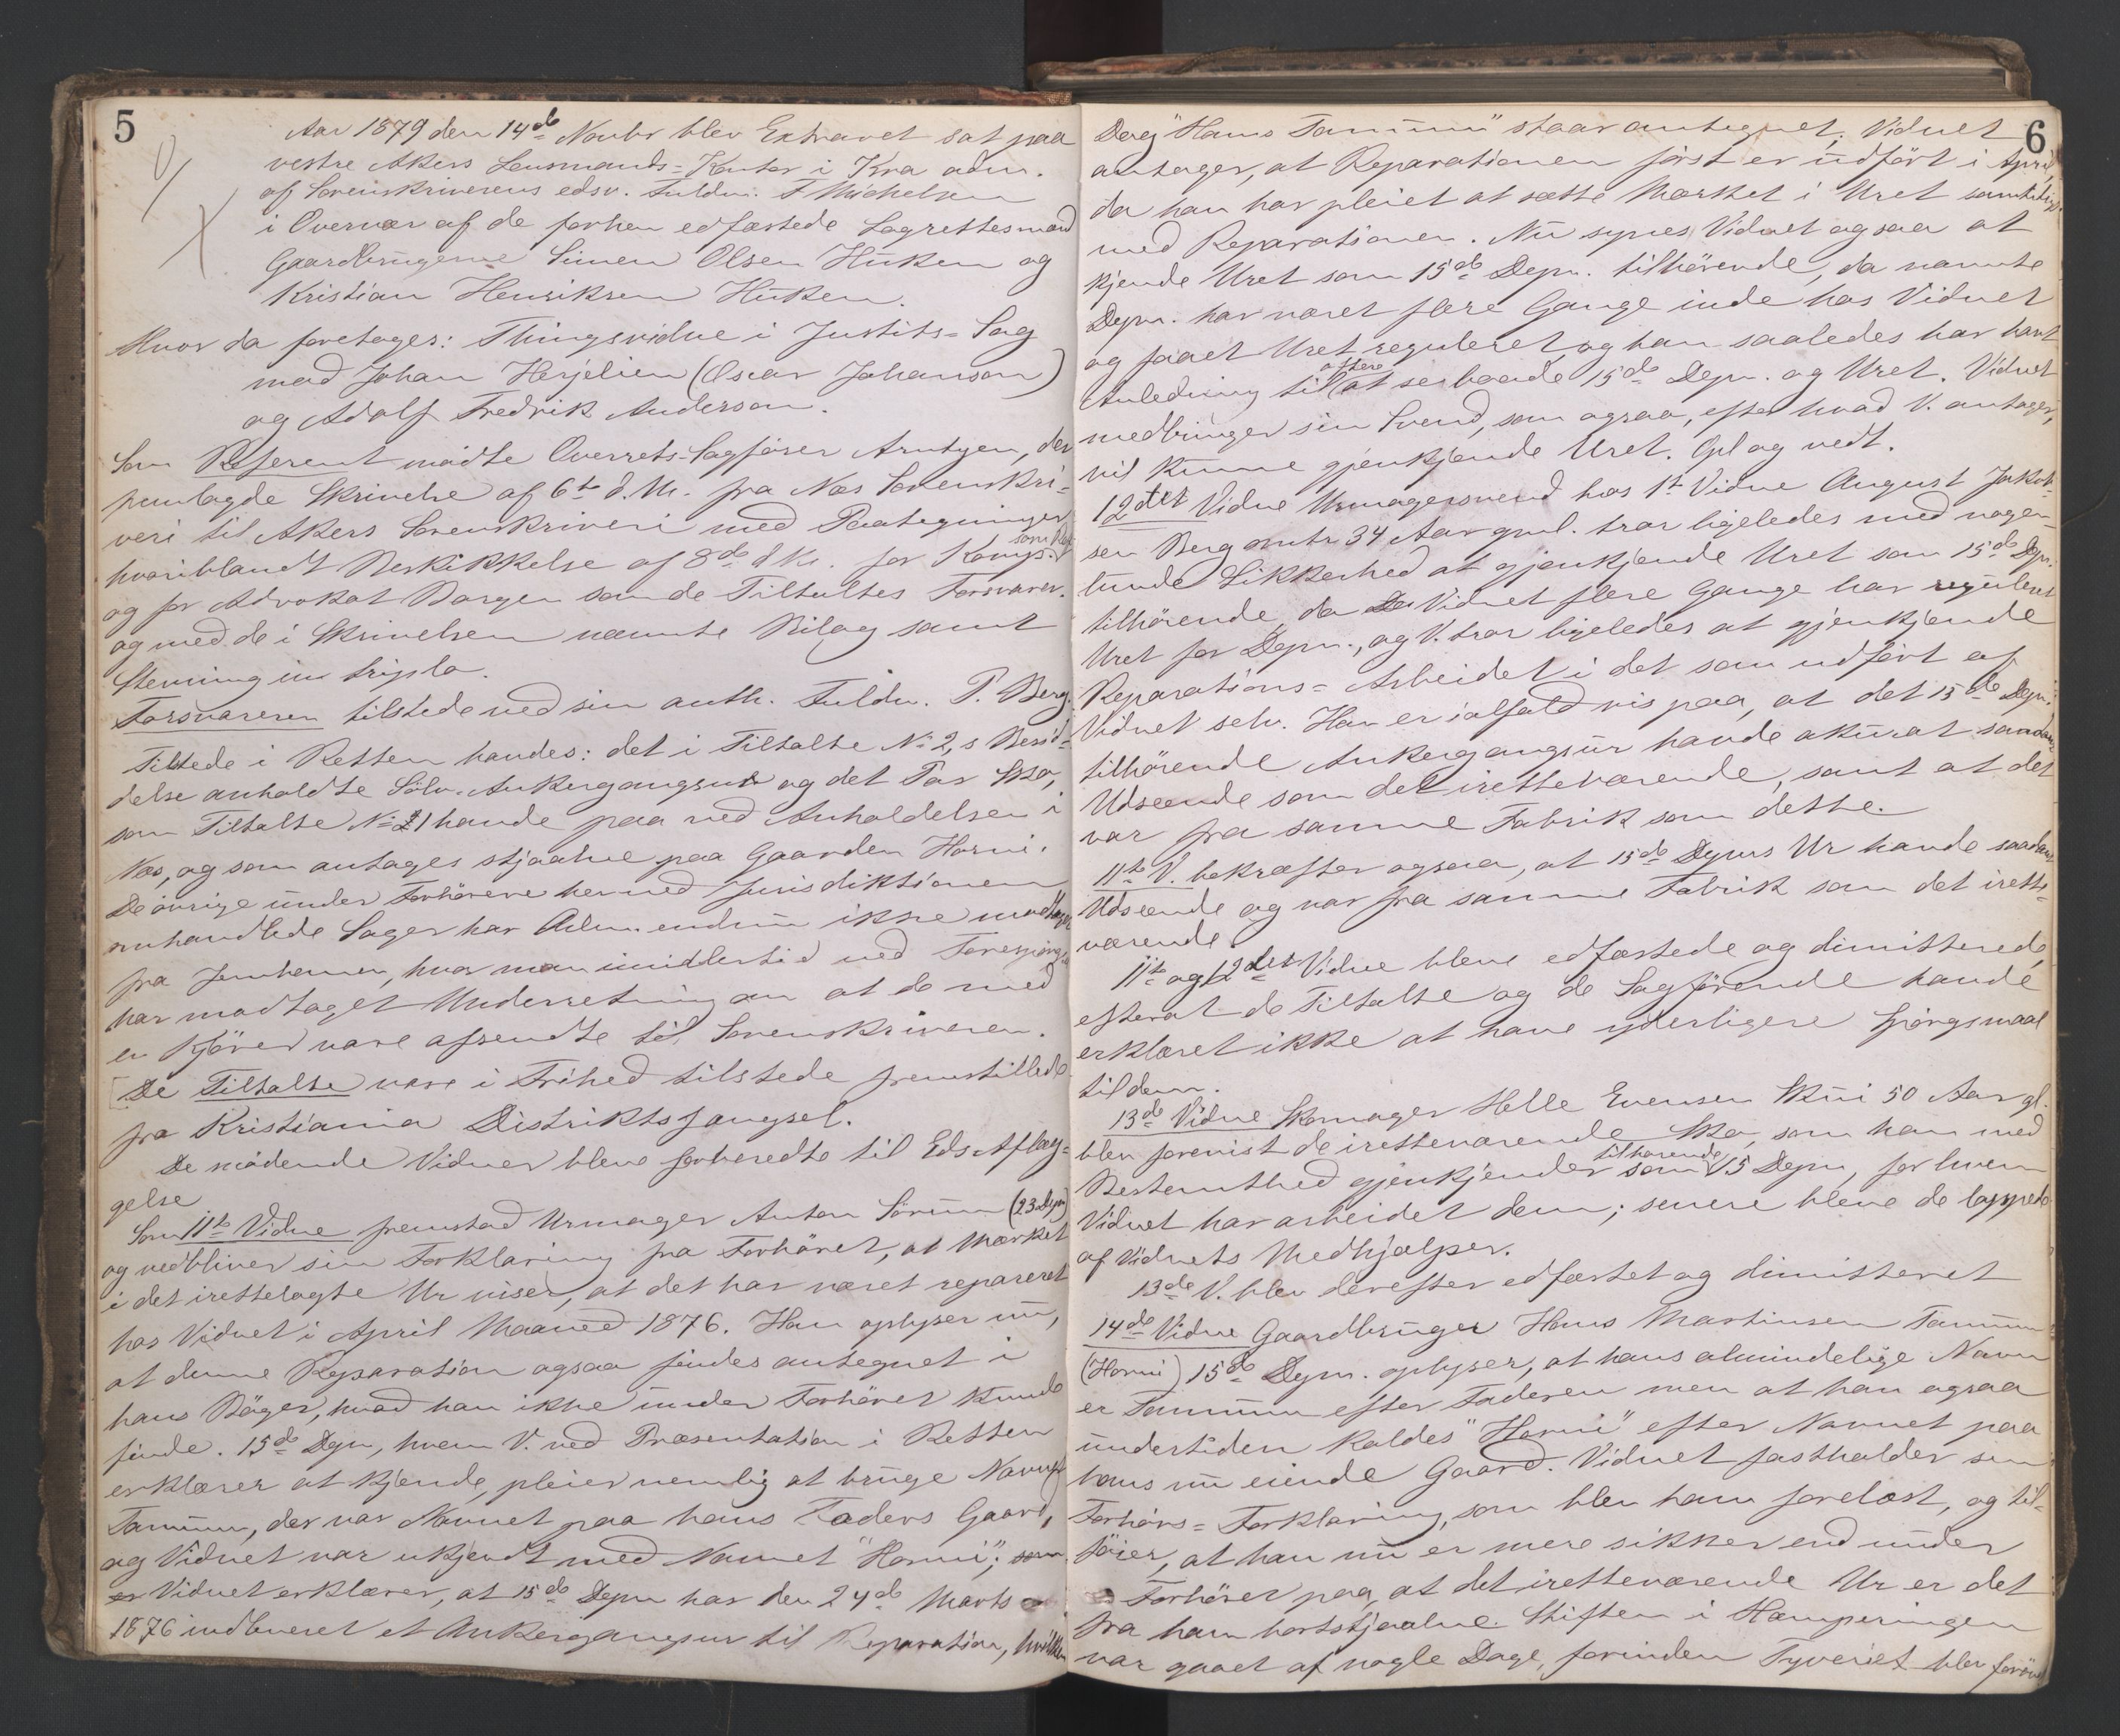 5
Aar 1879 den 14de Novbr blev Extraret sat paa
vestre Akers Lensmands-Kontor i Kra adm.
af Sorenskriverens edsv. Fuldm. F Michelsen
i Overvær af de forhen edfæstede Lagrettesmænd
Gaardbrugerne Simen Olsen Huken og
Kristian Henriksen Huken.
Hvor da foretages: Thingsvidne i Justits-Sag
mod Johan Herjelien (Oscar Johanson)
og Adolf Fredrik Anderson.
Som Referent mødte Overrets-Sagfører Arntzen, der
fremlagde Skrivelse af 6te d. M. fra Næs Sorenskri-
veri til Akers Sorenskriveri med Paategninger
hvoriblandt Beskikkelse af 8de d M. for Komp.
og for Advokat Borgen som de Tiltaltes Forsvarer
og med de i Skrivelsen nævnte Bilag samt
Stevning in triplo.
Forsvareren tilstede ved sin auth. Fuldm. P. Berg.
Tilstede i Retten havdes: det i Tiltalte No 2,s Besid-
delse anholdte Sølv-Ankergangsur og det Par Sko,
som Tiltalte No 1 havde paa ved Anholdelsen i
Næs, og som antages stjaalne paa Gaarden Horni.
De øvrige under Forhørene herved Jurisdiktionen
omhandlede Sager har Adm. endnu ikke modtaget
fra Jernbanen, hvor man imidlertid ved Forespørgsel
har modtaget Underretning om at de med
en Kjører vare afsendte til Sorenskriveren.
De Tiltalte vare i Frihed tilstede fremstillede
fra Kristiania Distriktsfængsel.
De mødende Vidner bleve forberedte til Eds Aflæg-
gelse
Som 11te Vidne fremstod Urmager Anton Sørum (23 Dpn)
og vedbliver sin Forklaring fra Forhøret, at Mærket
i det irettelagte Ur viser, at det har været repareret
hos Vidnet i April Maaned 1876. Han oplyser nu,
at denne Reparation ogsaa findes antegnet i
hans Bøger, hvad han ikke under Forhøret kunde
finde. 15de Dpn, hvem V. ved Præsentation i Retten
erklærer at kjende, pleier nemlig at bruge Navnet
Tammum, der var Navnet paa hans Faders Gaard,
og Vidnet var ukjendt med Navnet "Horni";
Vidnet erklærer, at 15de Dpn har den 24de Marts
1876 indleveret et Ankergangsur til Reparation, hvilken
6
Dag "Hans Tammum" staar antegnet; Vidnet
antager, at Reparationen først er udført i April,
da han har pleiet at sætte Mærket i Uret samtidig
med Reparationen. Nu synes Vidnet ogsaa at
kjende Uret som 15de Depn. tilhørende, da nævnte
Depn. har været flere Gange inde hos Vidnet
og faaet Uret reguleret, og han saaledes har havt
Anledning til oftere at se baade 15de Depn. og Uret. Vidnet
medbringer sin Svend, som ogsaa, efter hvad V. antager,
vil kunne gjenkjende Uret. Opl og vedt.
12det Vidne Urmagersvend hos 1st Vidne August Jakob-
sen Berg omtr 34 Aar gml. tror ligeledes med nogen-
lunde Sikkerhed at gjenkjende Uret som 15de Dpn.
tilhørende, da Vidnet flere Gange har reguleret
Uret for Depn., og V. tror ligeledes at gjenkjende
Reparations-Arbeidet i det som udført af
Vidnet selv. Han er ialfald vis paa, at det 15de Dpn.
tilhørende Ankergangsur havde akurat saadant
Udseende som det iretteværende, samt at det
var fra samme Fabrik som dette.
11te V. bekræfter ogsaa, at 15de Dpns Ur havde saadant
Udseende og var fra samme Fabrik som det irette-
værende.
11te og 12det Vidne bleve edfæstede og dimitterede,
efterat de Tiltalte og de Sagførende havde
erklæret ikke at have yderligere Spørgsmaal
til dem.
13de Vidne Skomager Helle Evensen Skui 50 Aar gl.
blev forevist de iretteværende Sko, som han med
Bestemthed gjenkjender som tilhørende 15 Depn, for hvem
Vidnet har arbeidet dem; senere bleve de lappede
af Vidnets Medhjælper.
13de V. blev derefter edfæstet og dimitteret
14de Vidne Gaardbruger Hans Martinsen Tammum
(Horni) 15de Depn. oplyser, at hans almindelige Navn
er Tammum efter Faderen men at han ogsaa
undertiden kaldes "Horni" efter Navnet paa
hans nu eiende Gaard. Vidnet fastholder sin
Forhørs-Forklaring, som blev ham forelæst, og til-
føier, at han nu er mere sikker end under
Forhøret paa, at det iretteværende Ur er det
fra ham bortstjaalne. Stiften i Hæmperingen
var gaaet af nogle Dage, forinden Tyveriet blev forøvet